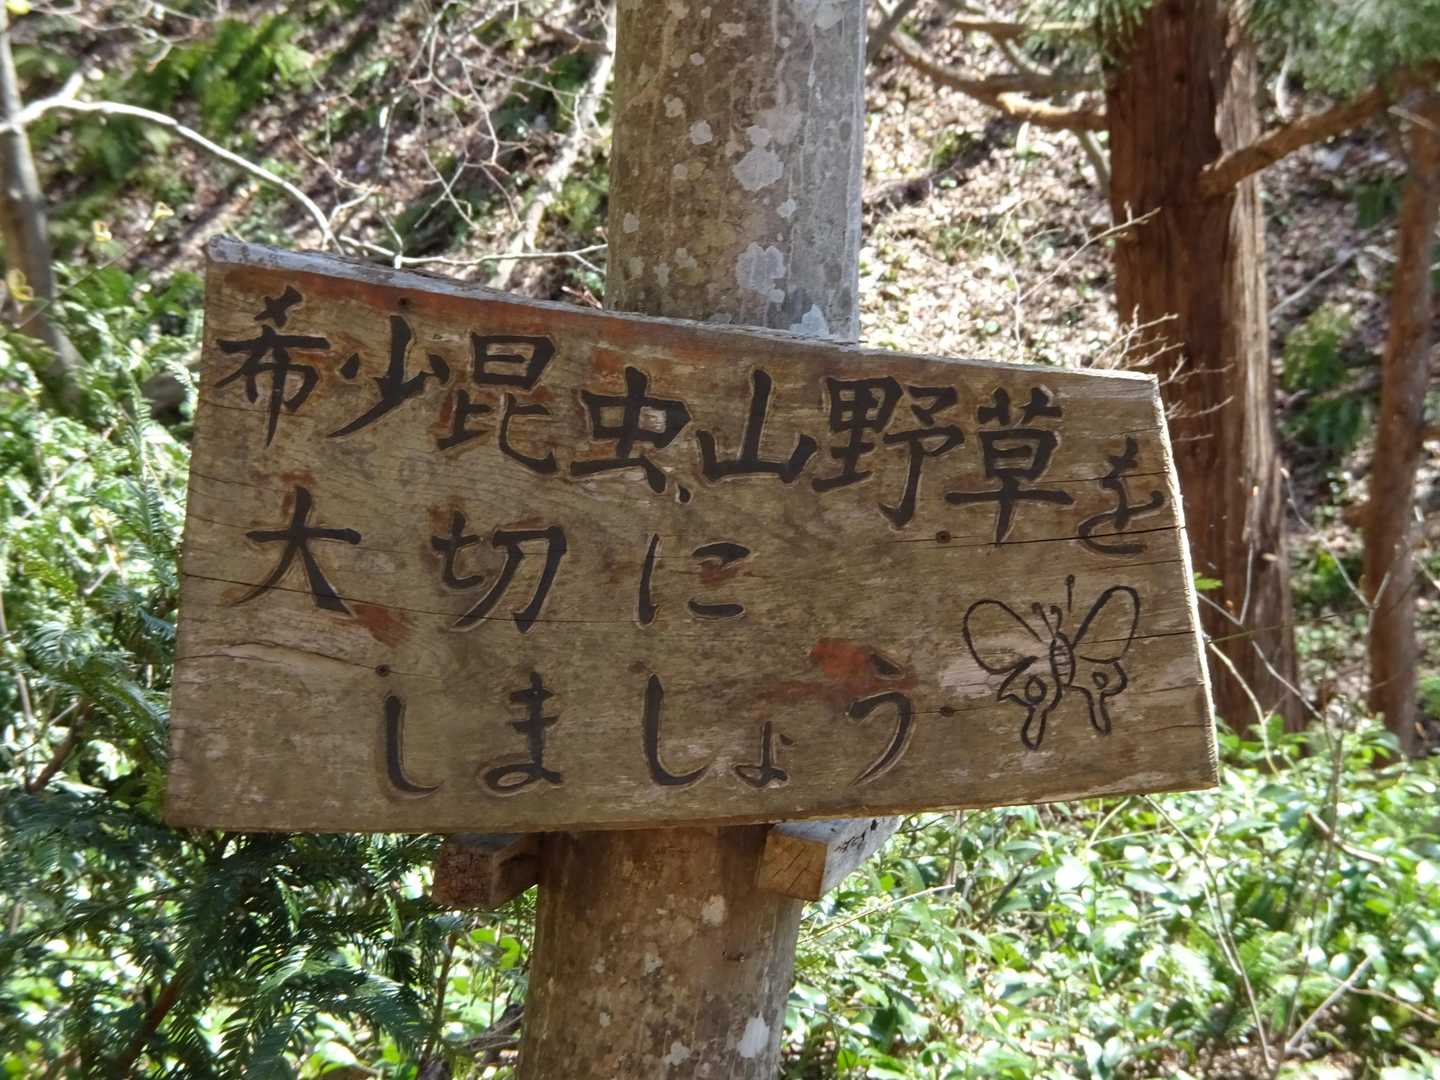 希少昆虫、山野草を
大切に
しましょう